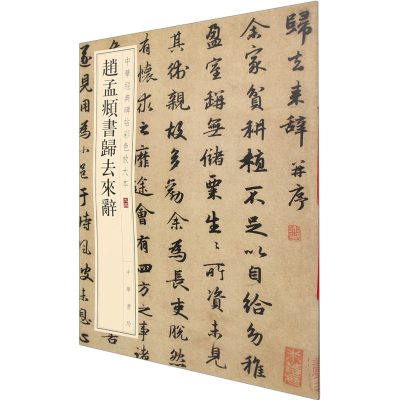 歸去来辞并序
余家貧耕植不足以自給幼稚
盈室缾無儲粟生〻所資未見
其術親故多勸余為長吏脱然
有懷求之靡途會有四方之事諸
遂見用為小邑于時風波未息心
中華經典碑帖彩色放大本
趙孟頫書歸去來辭
中華書局